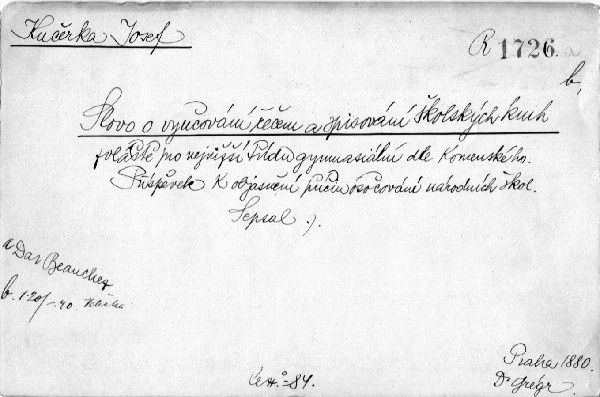 Kučěrka Josef
R 1726. a
b,
Slovo o vyučování řečem a spisování školských knih
zvláště pro nejnižší třídu gymnasiální dle Komenského.
Příspěvek k objasnění příčin osočování národních škol.
Sepsal .).
a Dar Beauchez
b. 120/-40
84.
Praha 1880.
Dr Grégr